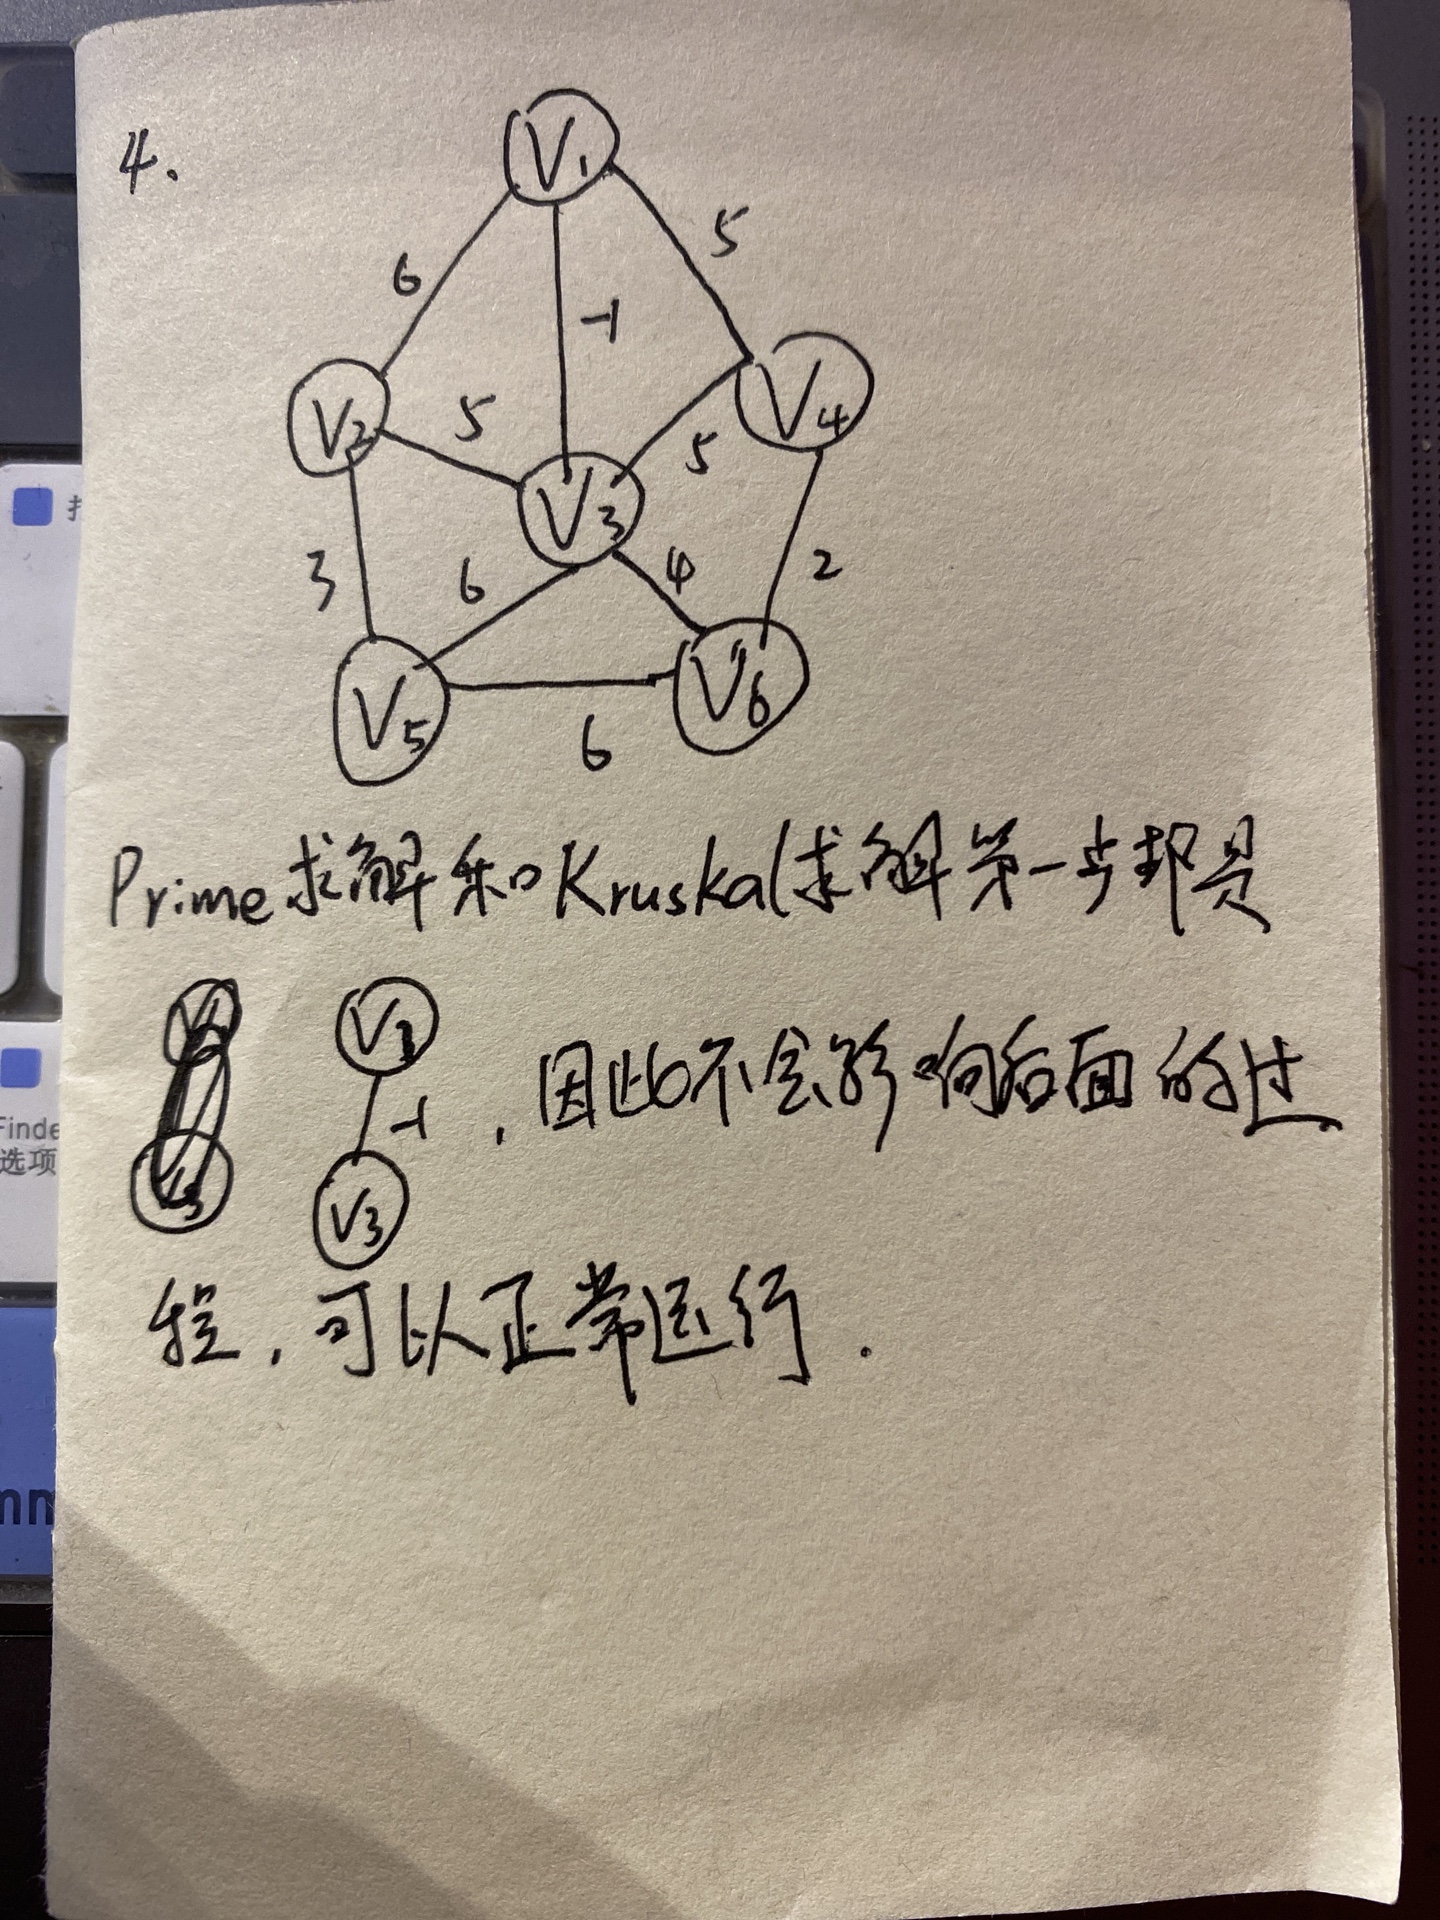 4.
V1
6
-1
5
V2
5
V3
5
V4
3
6
4
2
V5
6
V6
Prime求解和Kruskal求解第一步都是
V1
-1
V3
,因此不会影响后面的过
程,可以正常运行.
Finde
选项
mm